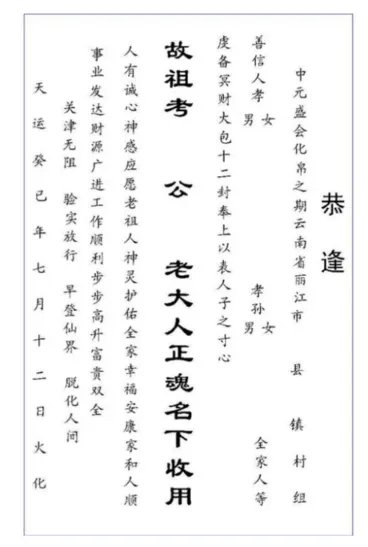 恭逢
中元盛会化帛之期云南省丽江市 县 镇 村 组
善信人孝男女 孝孙男女 全家人等
虔备冥财大包十二封奉上以表人子之寸心
故祖考 公 老大人正魂名下收用
人有诚心神感应愿老祖人神灵护佑全家幸福安康家和人顺
事业发达财源广进工作顺利步步高升富贵双全
关津无阻 验实放行 早登仙界 脱化人间
天运癸巳年七月十二日火化